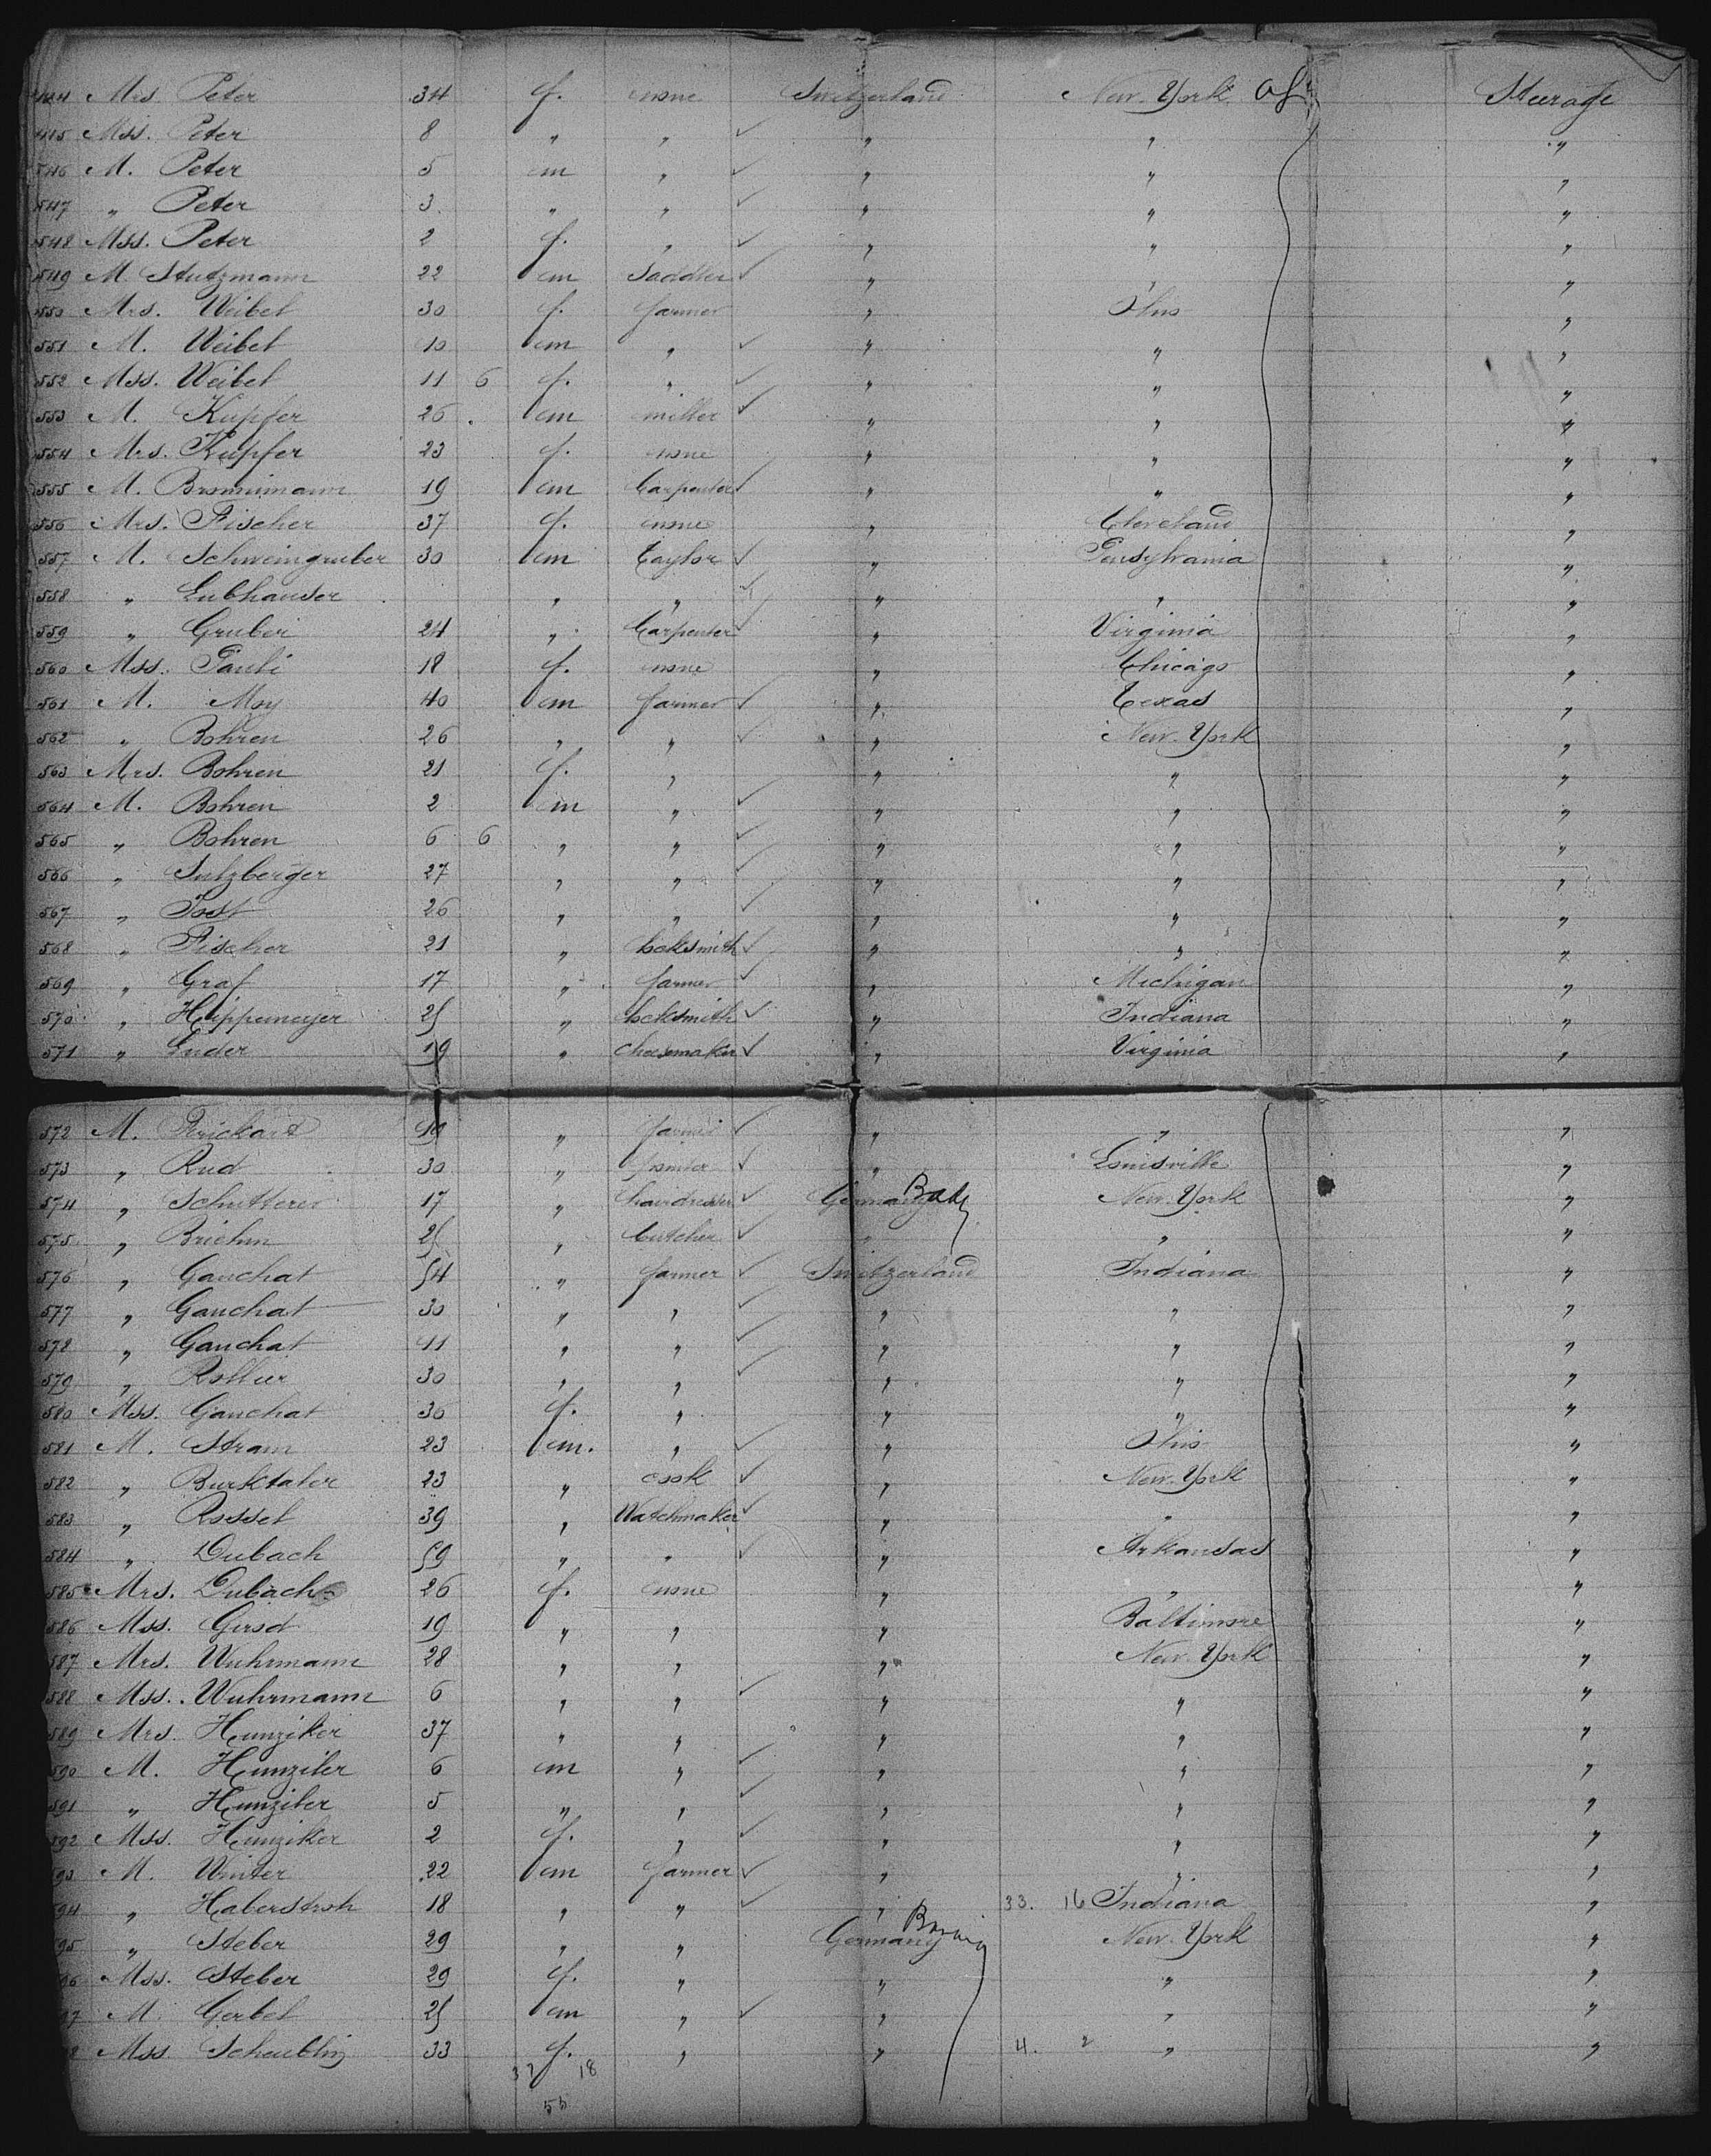 544 Mrs. Peter 34 f. none Switzerland New-York Steerage
545 Mss. Peter 8 " " ✓ " " "
546 M. Peter 5 m " ✓ " " "
547 " Peter 3 " " ✓ " " "
548 Mss. Peter 2 f. " ✓ " " "
549 M Stutzmann 22 m Saddler ✓ " " "
550 Mrs. Weibel 30 f. farmer " Ohio "
551 M. Weibel 10 m " ✓ " " "
552 Mss. Weibel 11 6 f. " ✓ " " "
553 M. Kupfer 26 m miller ✓ " " "
554 Mrs. Kupfer 23 f. none " " "
555 M. Bronnimann 19 m Carpenter ✓ " " "
556 Mrs. Fischer 37 f. none " Cleveland "
557 M. Schweingruber 30 m taylor ✓ " Pensylvania "
558 " Lubhauser " " ✓ " " "
559 " Gruber 24 " Carpenter ✓ " Virginia "
560 Mss. Pauli 18 f. none " Chicago "
561 M. Moy 40 m farmer ✓ " Texas "
562 " Bohren 26 " " ✓ " New-York "
563 Mrs. Bohren 21 f. " " " "
564 M. Bohren 2 m " ✓ " " "
565 " Bohren 6 6 " " ✓ " " "
566 " Sulzberger 27 " " ✓ " " "
567 " Jost 26 " " ✓ " " "
568 " Fischer 21 " locksmith ✓ " " "
569 " Graf 17 " farmer ✓ " Michigan "
570 " Huppemeyer 25 " locksmith ✓ " Indiana "
571 " Ender 19 " cheesmaker ✓ " Virginia "
572 M. Frickart 19 " farmer ✓ " " "
573 " Rud 30 " ✓ " Louisville "
574 " Schutterer 17 " hairdresser ✓ Germany New-York "
575 " Briehm 25 " butcher ✓ " " "
576 " Gauchat 54 " farmer ✓ Switzerland Indiana "
577 " Gauchat 30 " " ✓ " " "
578 " Gauchat 11 " " ✓ " " "
579 " Rollier 30 " " ✓ " " "
580 Mss. Gauchat 36 f. " " " "
581 M. Stram 23 m. " ✓ " Ohio "
582 " Burktaler 23 " cook ✓ " New-York "
583 " Rossel 39 " Watchmaker ✓ " " "
584 " Dubach 59 " " ✓ " Arkansas "
585 Mrs. Dubach 26 f. none " " "
586 Mss. Girod 19 " " " Baltimore "
587 Mrs. Wuhrmann 28 " " " New-York "
588 Mss. Wuhrmann 6 " " ✓ " " "
589 Mrs. Hunziker 37 " " " " "
590 M. Hunziker 6 m " ✓ " " "
591 " Hunziker 5 " " ✓ " " "
592 Mss. Hunziker 2 f. " ✓ " " "
93 M. Winter 22 m farmer ✓ " " "
94 " Haberstroh 18 " " ✓ " 33. 16 Indiana "
95 " Steber 29 " " Germany New-York "
96 Mss. Steber 29 f. " " " "
97 M. Gerbel 25 m " ✓ " " "
98 Mss. Scheublin 33 f. " " 4. 2 " "
37 18
55